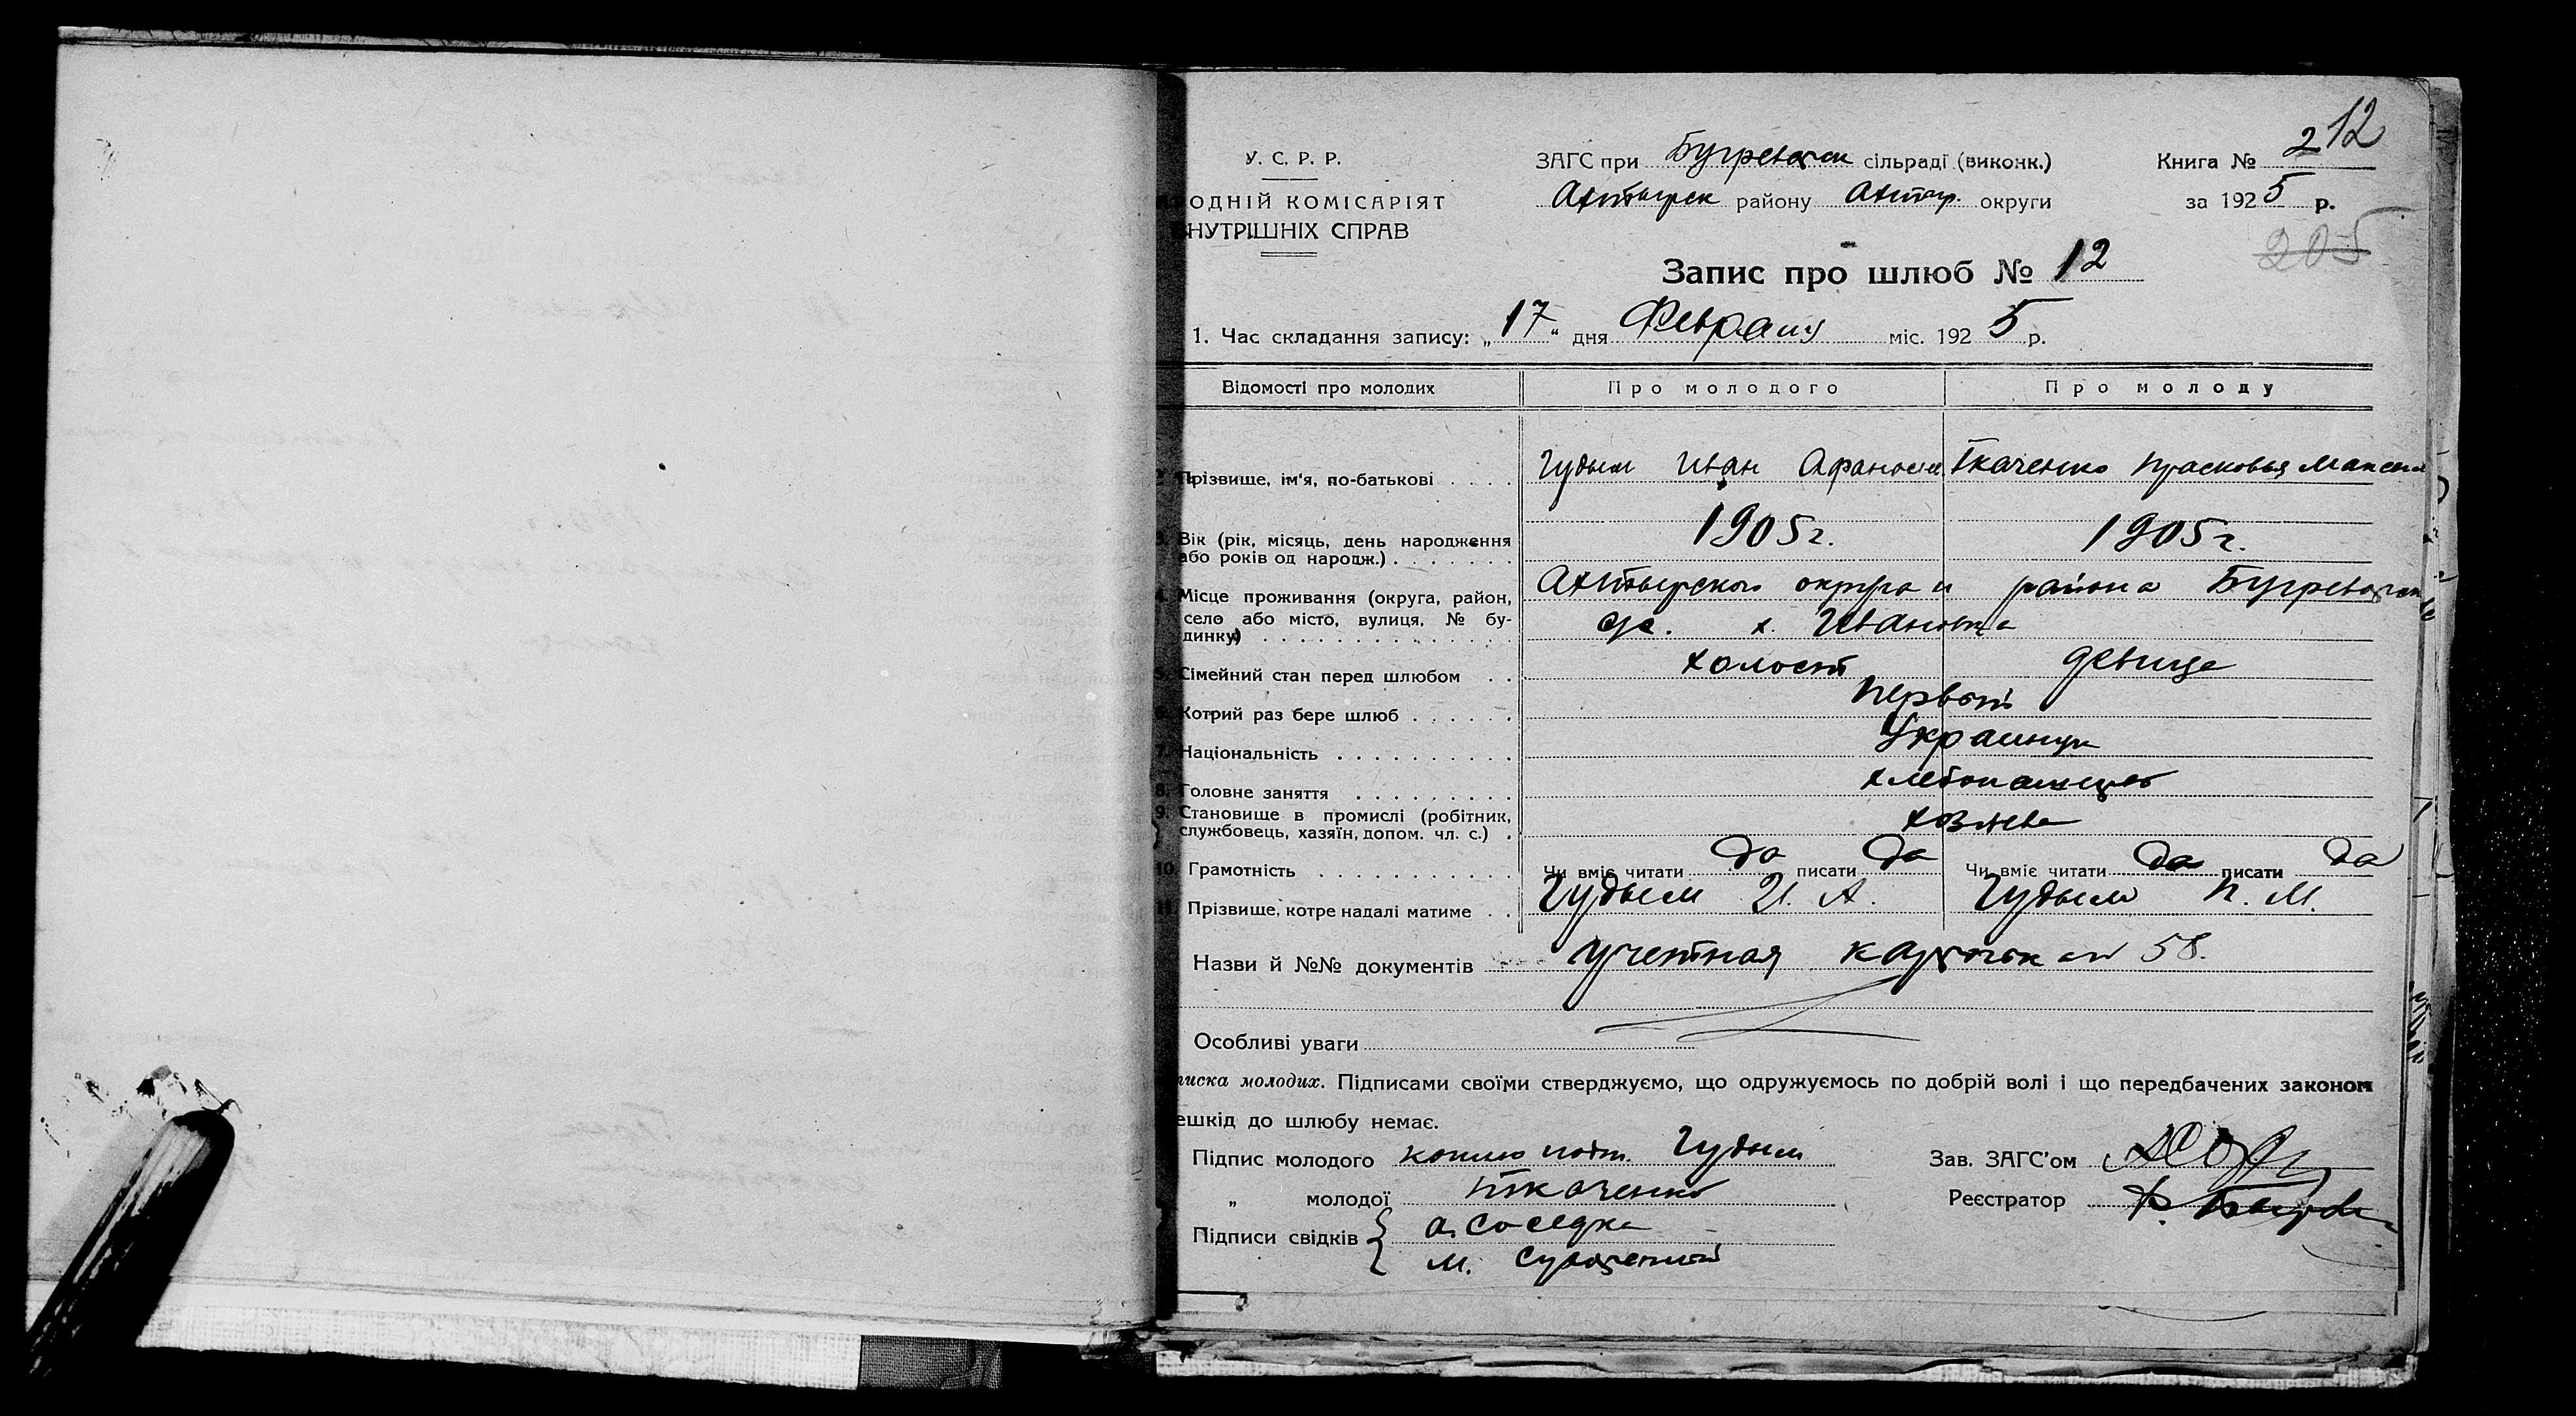 12
У. С. Р. Р.
ОДНІЙ КОМІСАРІЯТ
НУТРІШНІХ СПРАВ
ЗАГС при Бугреватск сільраді (виконк.)
Ахтырск району Ахтыр. округи
Книга № 2
за 1925 р.
205
Запис про шлюб № 12
1. Час складання запису: „17“ дня Февраля міс. 1925 р.
Відомості про молодих Про молодого Про молоду
Прізвище, ім'я, по-батькові . . . . Гудым Иван Афанасие Ткаченко Прасковья Максим
3. Вік (рік, місяць, день народження 1905 г. 1905 г.
або років од народж.) . . . . . . .
4. Місце проживання (округа, район, Ахтырского округа и района Бугреватск
село або місто, вулиця, № бу-
динку) . . . . . . . . . . . . . . с/с. х. Ивановка
5. Сімейний стан перед шлюбом . . холост девица
6. Котрий раз бере шлюб . . . . . . первый
7. Національність . . . . . . . . . . Украинцы
8. Головне заняття . . . . . . . . . хлебопашцы
9. Становище в промислі (робітник,
службовець, хазяїн, допом. чл. с.) . хозяева
10. Грамотність . . . . . . . . . . . Чи вміє читати да писати да Чи вміє читати да писати да
11. Прізвище, котре надалі матиме . . Гудым И. А. Гудым П. М.
Назви й №№ документів учетная карточка 58.
Особливі уваги
писка молодих. Підписами своїми стверджуємо, що одружуємось по добрій волі і що передбачених законом
ешкід до шлюбу немає.
Підпис молодого Гудым
„ молодої Ткаченко
Підписи свідків А. Соседка
М.
Зав. ЗАГС'ом
Реєстратор